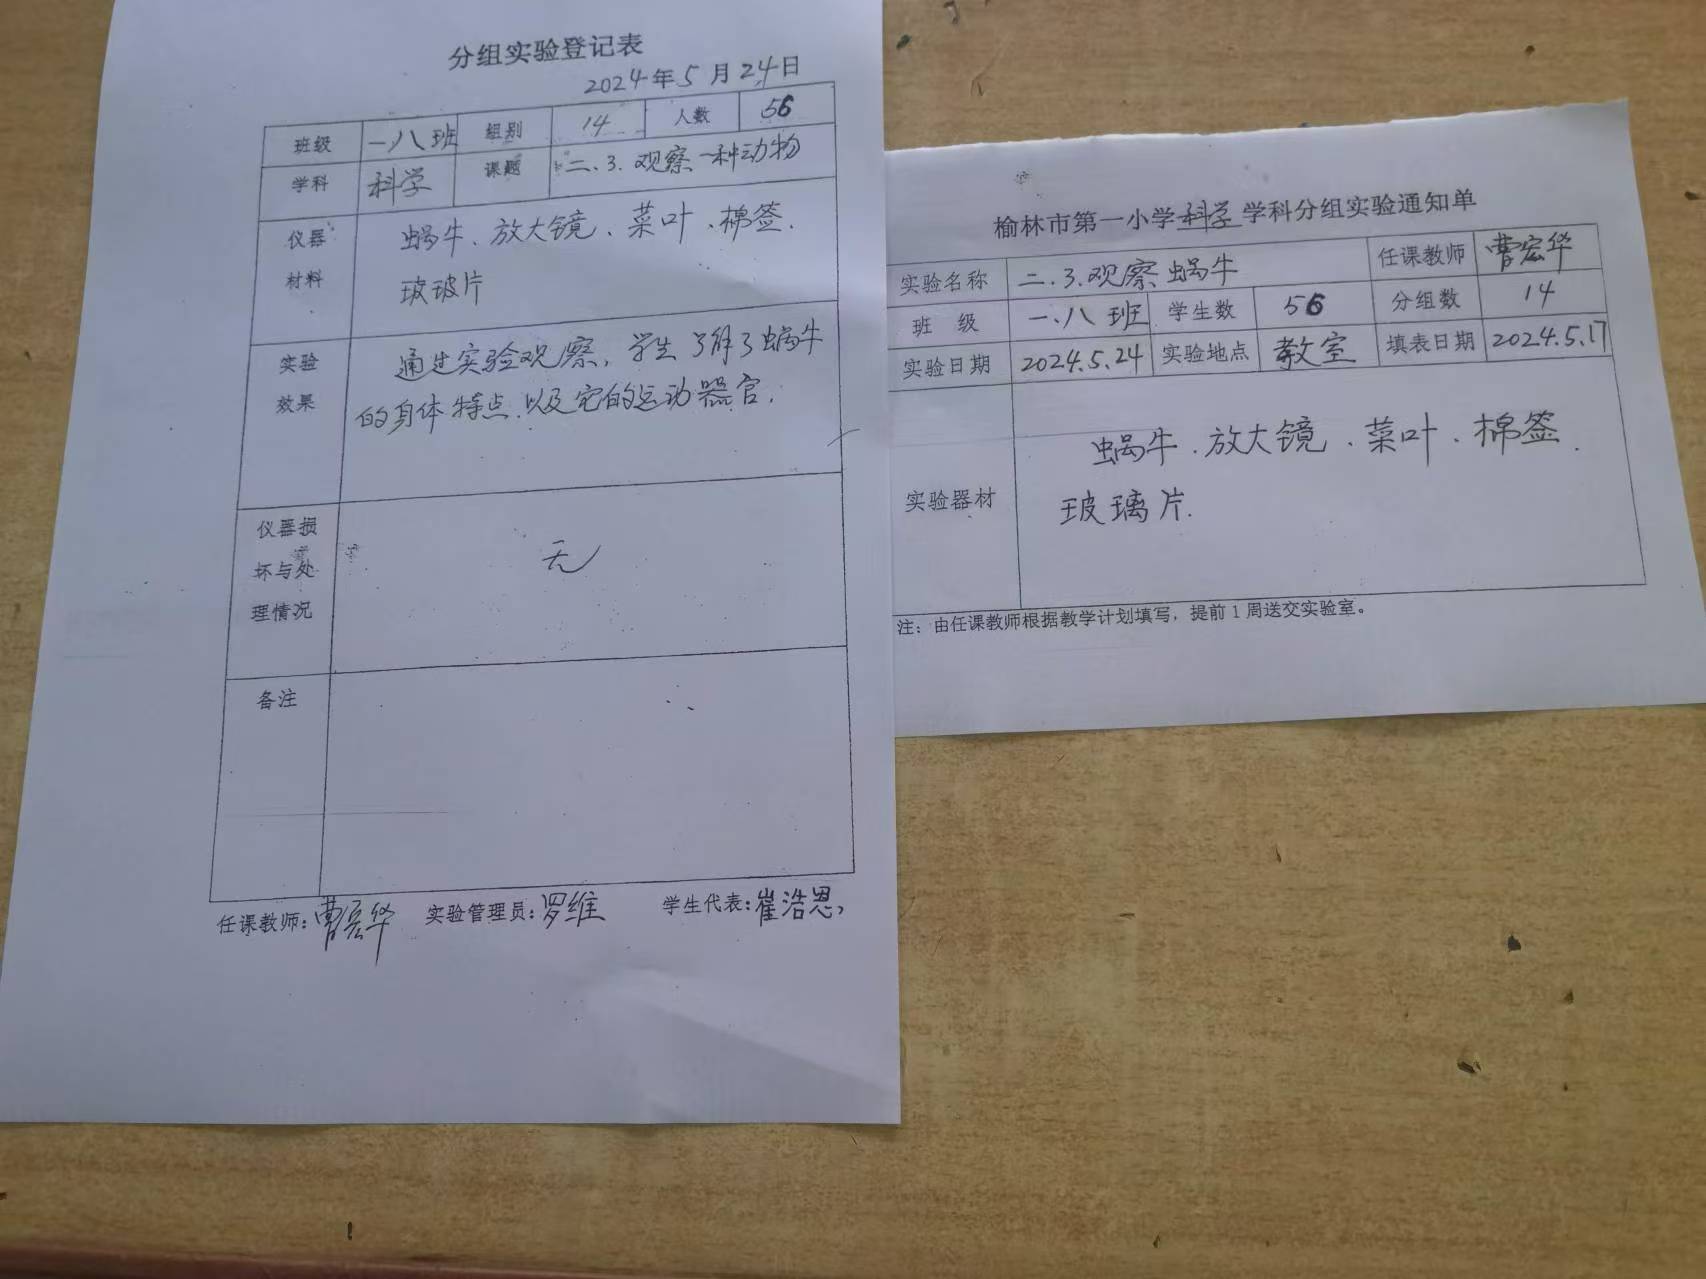 分组实验登记表
2024年5月24日
班级 一八班 组别 14 人数 56
学科 科学 课题 二、3.观察一种动物
仪器材料 蜗牛、放大镜、菜叶、棉签.
玻玻片
实验效果 通过实验观察,学生了解了蜗牛
的身体特点.以及它的运动器官.
仪器损坏与处理情况 无
备注
任课教师:曹宏华 实验管理员:罗维 学生代表:崔浩恩
榆林市第一小学科学学科分组实验通知单
实验名称 二.3.观察蜗牛 任课教师 曹宏华
班 级 一.八班 学生数 56 分组数 14
实验日期 2024.5.24 实验地点 教室 填表日期 2024.5.17
实验器材 蜗牛.放大镜、菜叶.棉签.
玻璃片.
注:由任课教师根据教学计划填写,提前1周送交实验室。